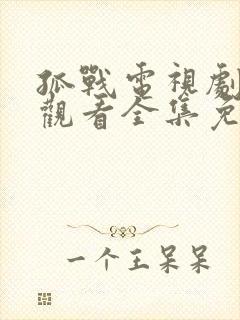 孤戰電視劇
觀看全集免
一个王呆呆